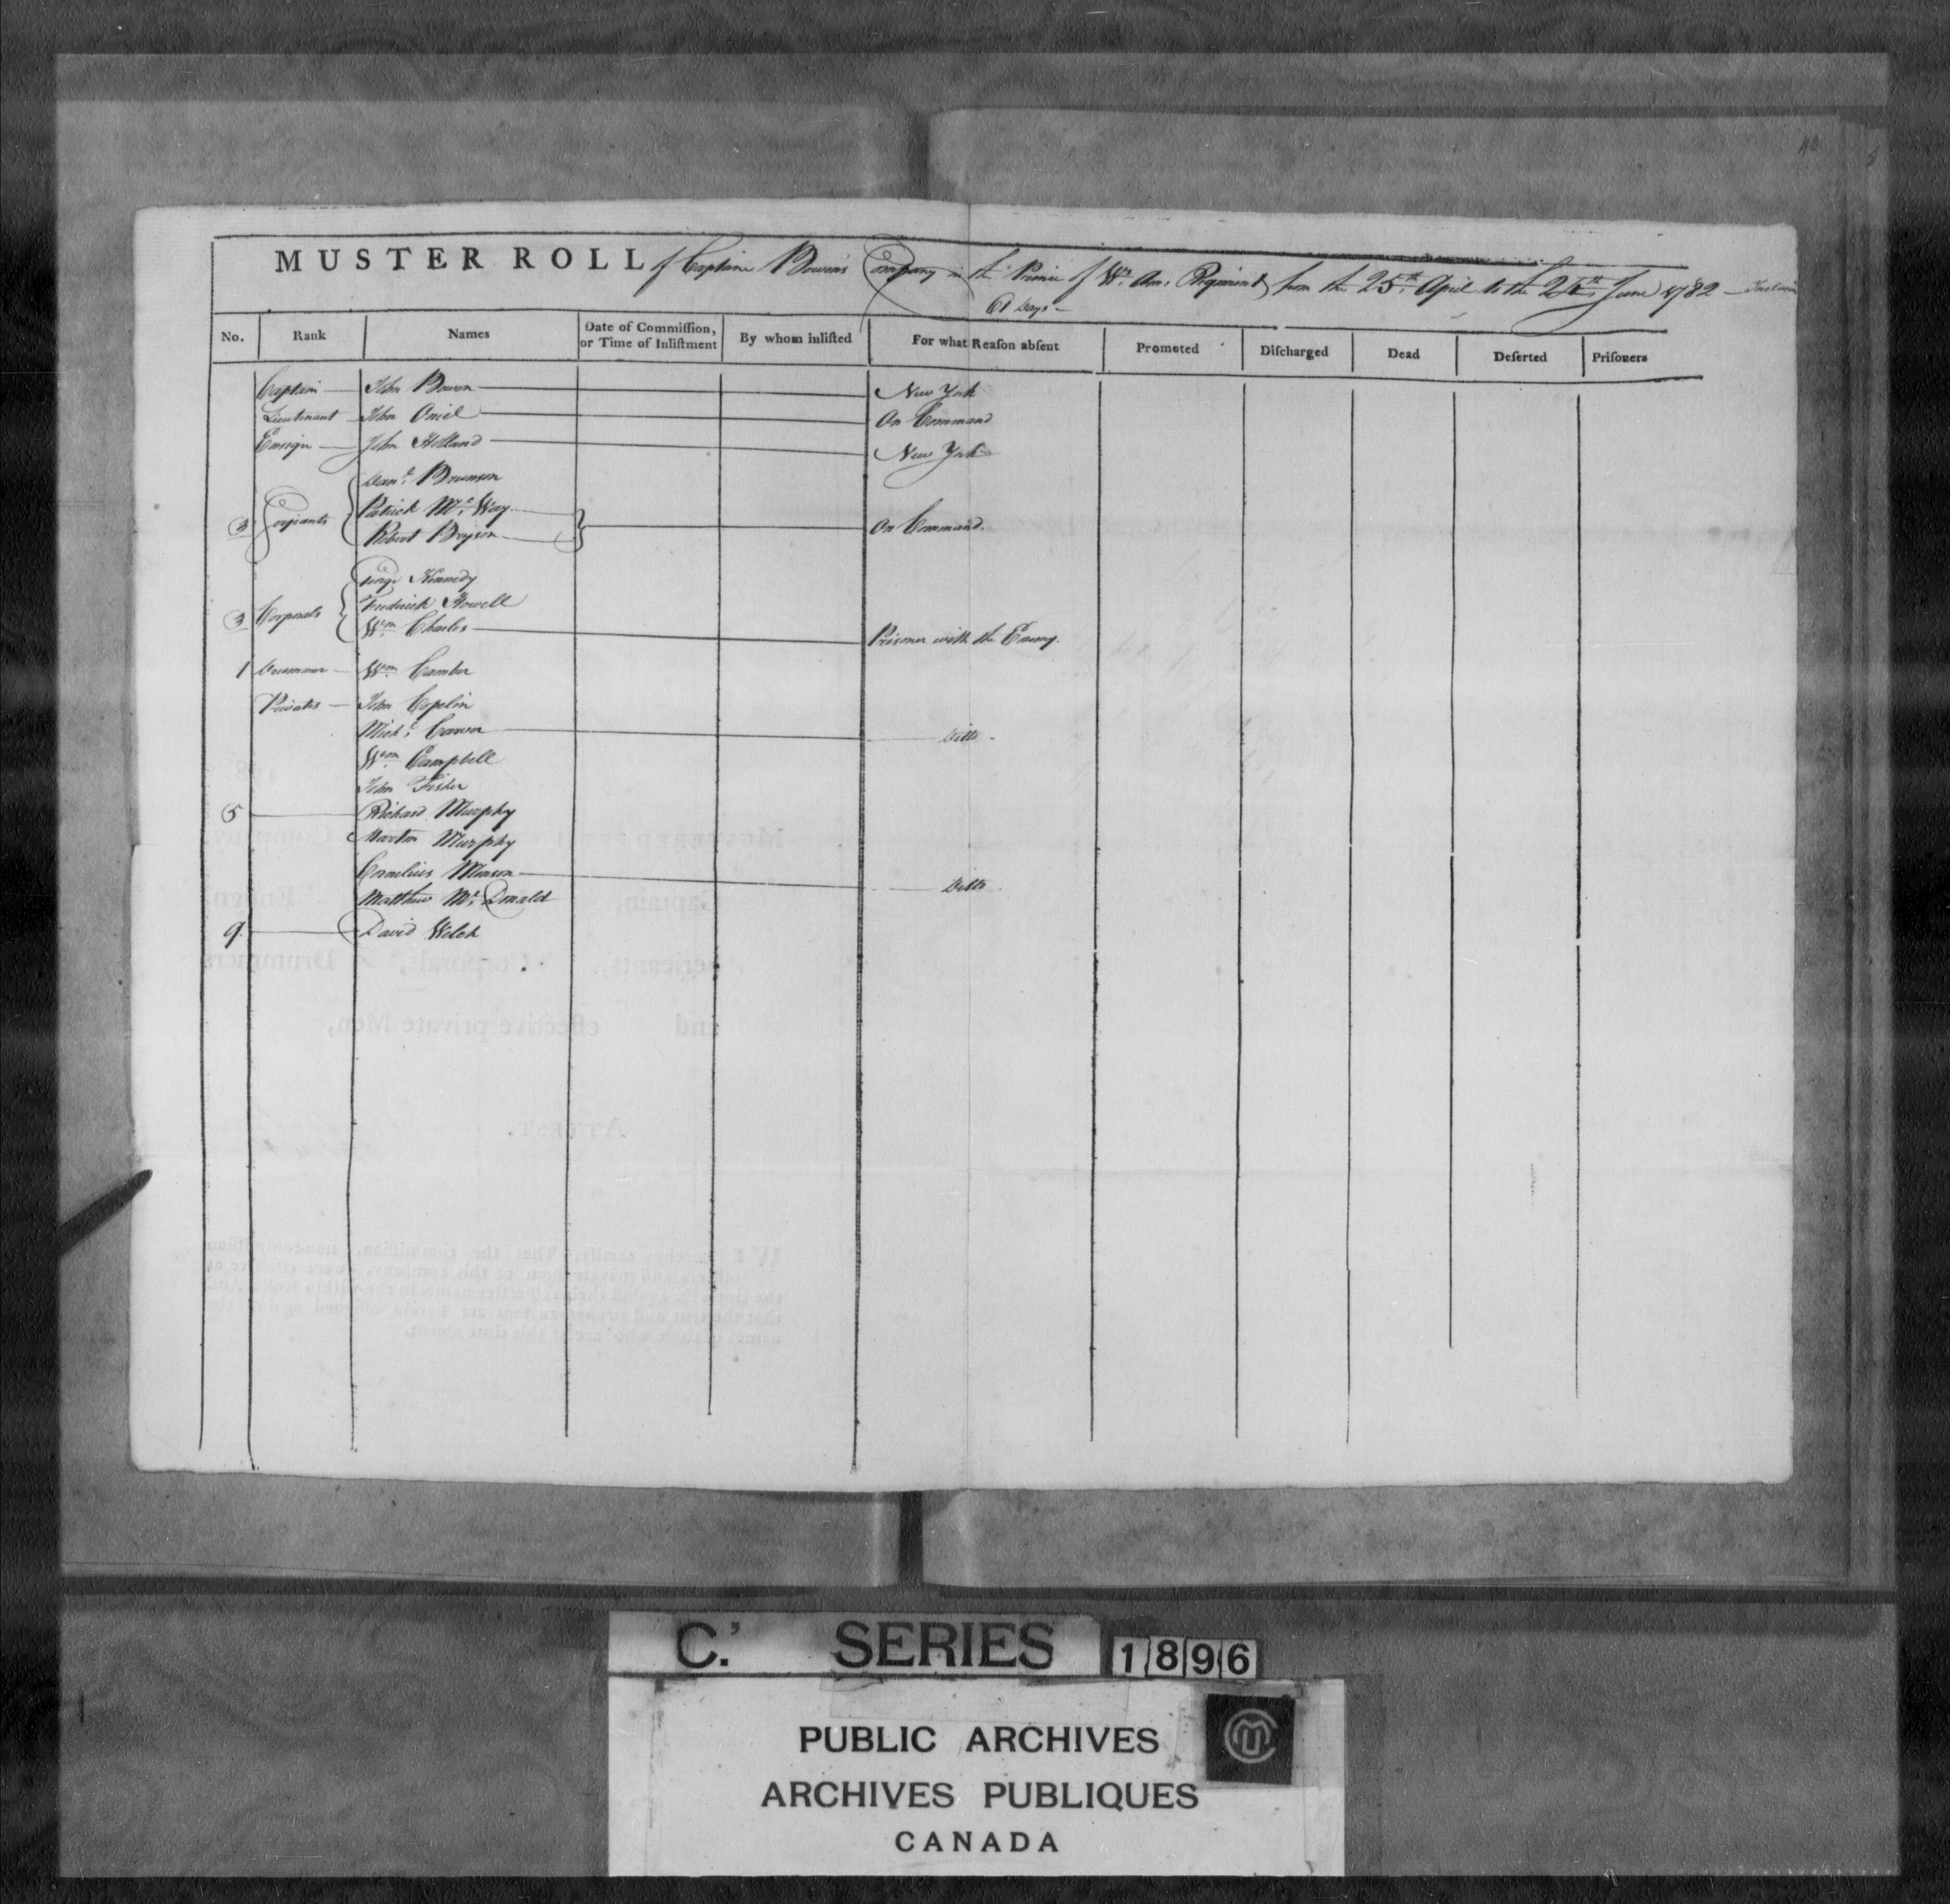 40
MUSTER ROLL of Captain Bowen's Company in the Prince of Ws. Am. Regiment from the 25th. April to the 24th. June 1782 — Inclusive
61 Days —
No. Rank Names Date of Commiſſion, or Time of Inliſtment By whom inliſted For what Reaſon abſent Promoted Diſcharged Dead Deſerted Priſoners
Captain — John Bowen — New York
Lieutenant — John Oniel — On Command
Ensign — John Holland — New York
Danl. Brunson
Patrick Mc. Way
3 Serjeants Robert Bryson — On Command
George Kennedy
Fredrick Howell
3 Corporals Wm. Charles — Prisoner with the Enemy.
1 Drummer — Wm. Camber
Privates — John Copelin
Michl. Carver — Ditto
Wm. Campbell
John Fisher
5 — Richard Murphy
Martin Murphy
Cornelius Monson — Ditto
Matthew Mc. Donald
9 — David Welch
C.' SERIES 1896
PUBLIC ARCHIVES
ARCHIVES PUBLIQUES
CANADA